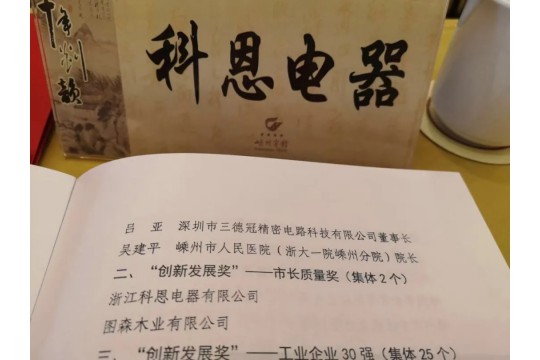 科恩电器
吕 亚 深圳市三德冠精密电路科技有限公司董事长
吴建平 嵊州市人民医院（浙大一院嵊州分院）院长
二、“创新发展奖”——市长质量奖（集体2个）
浙江科恩电器有限公司
图森木业有限公司
三、“创新发展奖”——工业企业30强（集体25个）